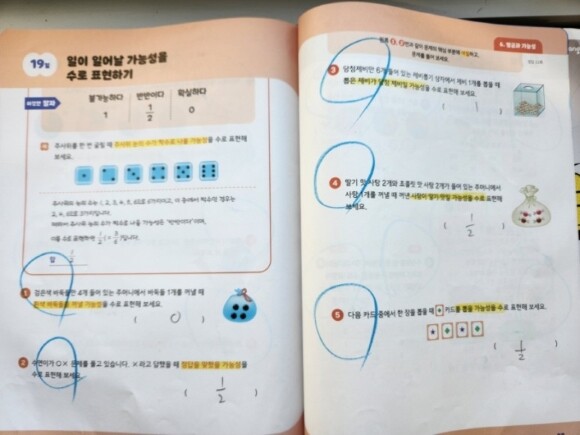 19일
일이 일어날 가능성을
수로 표현하기
불가능하다 반반이다 확실하다
1 1/2 0
주사위를 한 번 굴릴 때 주사위 눈의 수가 짝수로 나올 가능성을 수로 표현해
보세요.
주사위의 눈의 수는 1, 2, 3, 4, 5, 6으로 6가지이고, 이 중에서 짝수인 경우는
2, 4, 6으로 3가지입니다.
따라서 주사위 눈의 수가 짝수로 나올 가능성은 '반반이다'이며,
이를 수로 표현하면 1/2(=3/6)입니다.
답 1/2
1 검은색 바둑돌만 4개 들어 있는 주머니에서 바둑돌 1개를 꺼낼 때
흰색 바둑돌을 꺼낼 가능성을 수로 표현해 보세요.
( 0 )
2 수연이가 ○× 문제를 풀고 있습니다. ×라고 답했을 때 정답을 맞혔을 가능성을
수로 표현해 보세요.
( 1/2 )
문제를 풀어 보세요.
6. 평균과 가능성
3 당첨제비만 6개 들어 있는 제비뽑기 상자에서 제비 1개를 뽑을 때
뽑은 제비가 당첨 제비일 가능성을 수로 표현해 보세요.
( 1 )
4 딸기 맛 사탕 2개와 초콜릿 맛 사탕 2개가 들어 있는 주머니에서
사탕 1개를 꺼낼 때 꺼낸 사탕이 딸기 맛일 가능성을 수로 표현해
보세요.
( 1/2 )
5 다음 카드 중에서 한 장을 뽑을 때 카드를 뽑을 가능성을 수로 표현해 보세요.
( 1/2 )